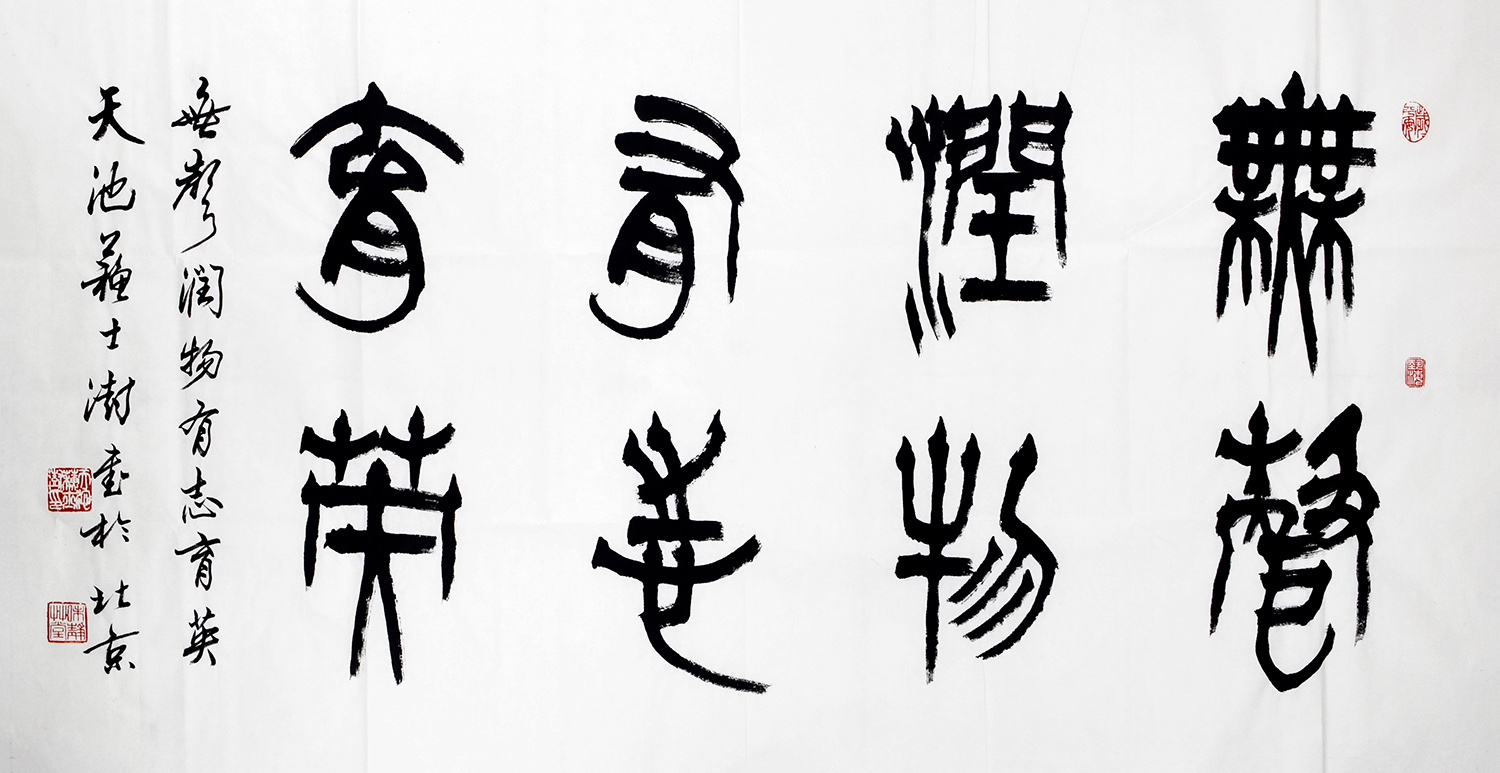 無聲
潤物
有志
育英
無聲潤物有志育英
天池蘇士澍書於北京